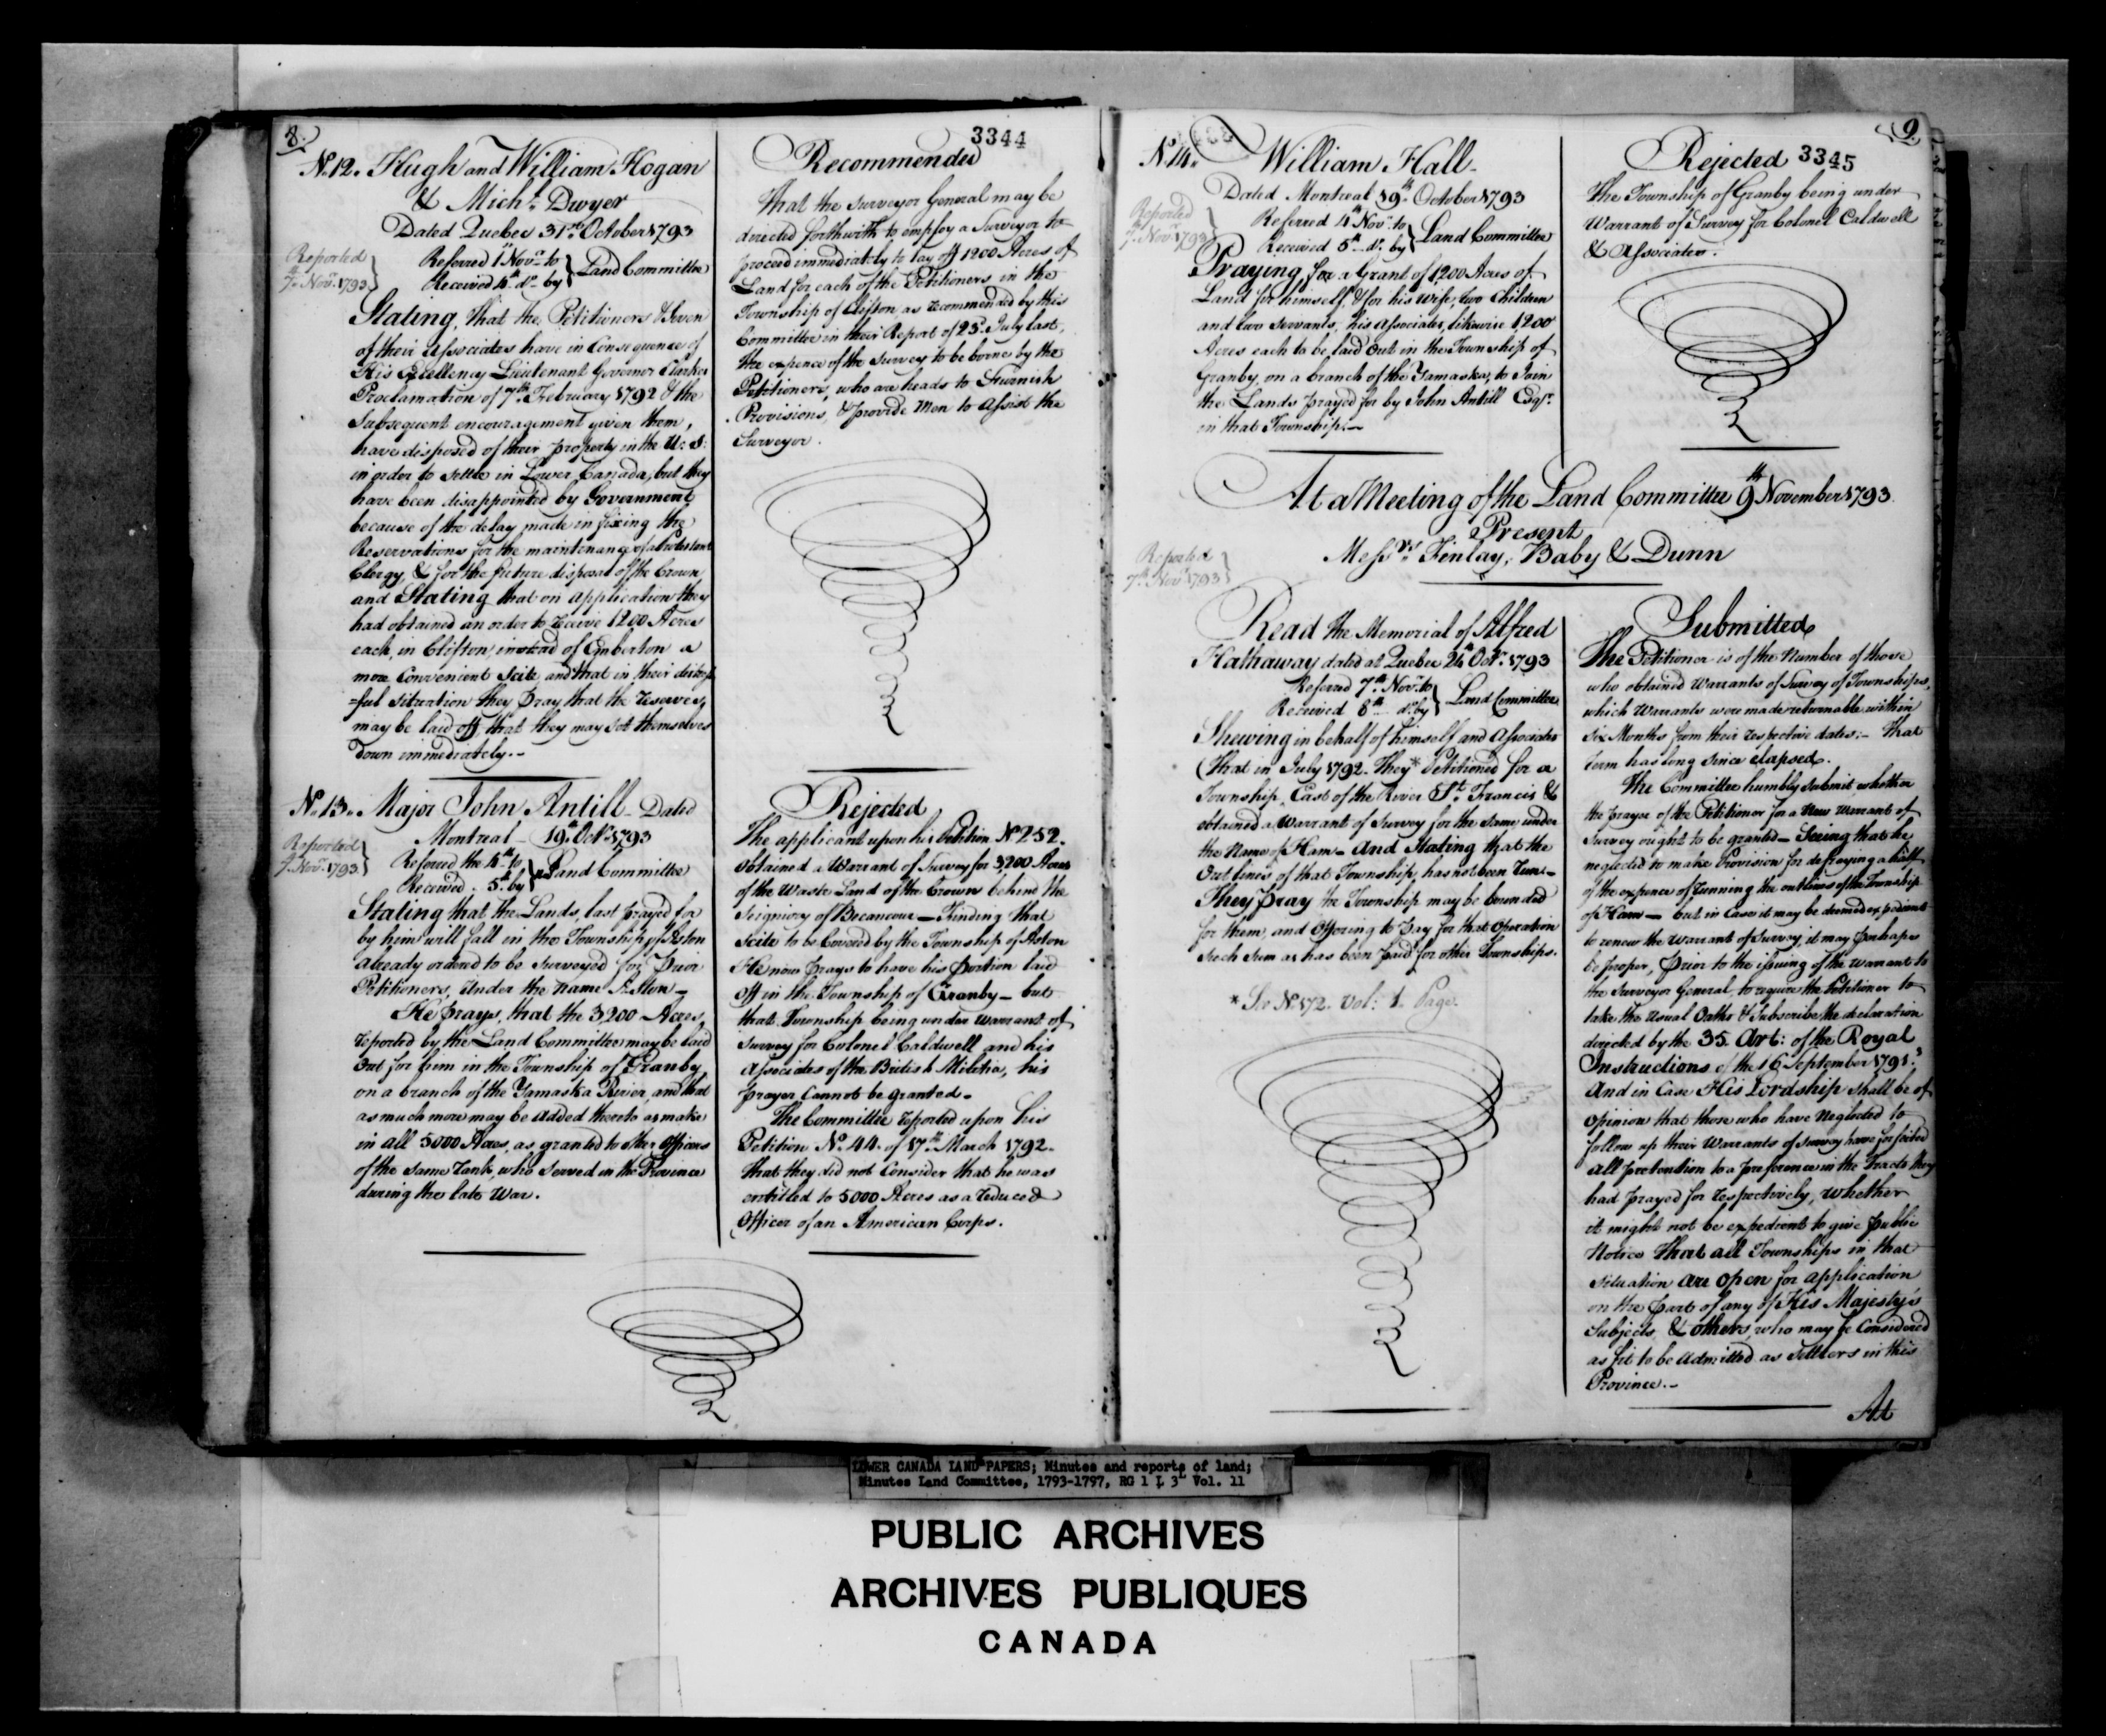 8.
3344
No. 12. Hugh and William Hogan
& Michl. Dwyer
Dated Quebec 31st. October 1793
Reported
7th. Novr. 1793
Referred 1st Novr. to
Received 4th do. by
Land Committee
Stating, that the Petitioners & Seven
of their Associates have in Consequence of
His Excellency Lieutenant Governor Clarkes
Proclamation of 7th. February 1792 & the
Subsequent encouragement given them,
have disposed of their property in the U: S:
in order to settle in Lower Canada, but they
have been disappointed by Government
because of the delay made in fixing the
Reservations for the maintenance of a Protestant
Clergy, & for the future disposal of the Crown
and Stating that on application they
had obtained an order to receive 1200 Acres
each, in Clifton, instead of Emberton a
more Convenient Scite, and that in their distress
=ful situation they Pray that the reserves,
may be laid off, that they may set themselves
down immediately.-
Recommended
That the Surveyor General may be
directed forthwith to employ a Surveyor to
proceed immediately to lay off 1200 Acres of
Land for each of the Petitioners in the
Township of Clifton, as recommended by this
Committee in their Report of 25th. July last,
the expence of the Survey to be borne by the
Petitioners, who are heads to Furnish
Provisions, & provide Men to Assist the
Surveyor.
No. 13. Major John Antill - Dated
Montreal 19th. Octr. 1793
Reported
7th. Novr. 1793
Referred the 4th. to
Received . 5th. by
Land Committee
Stating that the Lands, last prayed for
by him will fall in the Township of Aston
already ordered to be surveyed for Prior
Petitioners, under the name Aston -
He prays, that the 3,200 Acres,
reported by the Land Committee may be laid
out for him in the Township of Granby,
on a branch of the Yamaska River, and that
as much more may be added thereto as make
in all 5000 Acres, as granted to other Officers
of the same rank, who served in the Province
during the late War.
Rejected
The applicant upon his Petition No. 252.
obtained a Warrant of Survey for 3,200 Acres
of the Waste Land of the Crown behind the
Seigniory of Becancour - Finding that
Scite to be Covered by the Township of Aston
He now prays to have his portion laid
off in the Township of Granby - but
that Township being under Warrant of
Survey for Colonel Caldwell and his
Associates of the British Militia, his
prayer Cannot be granted.
The Committee reported upon his
Petition No. 44. of 17th. March 1792.
that they did not Consider that he was
entitled to 5000 Acres as a reduced
Officer of an American Corps.
9.
3345
No. 14. William Hall -
Dated Montreal 19th. October 1793
Reported
7th. Novr. 1793
Referred 4th Novr. to
Received 5th do. by
Land Committee
Praying for a Grant of 1200 Acres of
Land for himself, & for his Wife, two Children
and two servants, his Associates, likewise 1200
Acres each to be laid out in the Township of
Granby, on a branch of the Yamaska, to Join
the Lands prayed for by John Antill Esqr.
in that Township.-
Rejected
The Township of Granby being under
Warrant of Survey for Colonel Caldwell
& Associates.
At a Meeting of the Land Committee 9th November 1793.
Present
Messrs. Finlay, Baby & Dunn
Reported
7th. Novr. 1793
Read the Memorial of Alfred
Hathaway dated at Quebec 24th Octr. 1793
Referred 7th. Novr. to
Received 8th do. by
Land Committee
Shewing in behalf of himself and Associates
(that in July 1792. they* Petitioned for a
Township, East of the River St. Francis &
obtained a Warrant of Survey for the same under
the Name of Ham - and Stating that the
Out lines of that Township, has not been run -
They Pray the Township may be bounded
for them, and Offering to Pay for that Operation
such Sum as has been paid for other Townships.
* See No. 172. Vol: 1. Page.
Submitted
The Petitioner is of the Number of those
who obtained Warrants of Survey of Townships,
which Warrants were made returnable within
six Months from their respective dates; - That
term has long since elapsed.
The Committee humbly submit, whether
the prayer of the Petitioner for a New Warrant of
Survey ought to be granted - Seeing that he
neglected to make Provision for defraying a half
of the expence of running the outlines of the Township
of Ham - but in Case it may be deemed expedient
to renew the Warrant of Survey, it may perhaps
be proper, prior to the issuing of the Warrant to
the Surveyor General, to require the Petitioner to
take the Usual Oaths & Subscribe the declaration
directed by the 35. Art: of the Royal
Instructions of the 16 September 1791.
And in Case His Lordship shall be of
opinion that those who have neglected to
follow up their Warrants of Survey have forfeited
all pretention to a preference in the Tracts they
had prayed for respectively, whether
it might not be expedient to give public
Notice that all Townships in that
situation are open for application
on the part of any of His Majesty's
Subjects, & others, who may be Considered
as fit to be admitted as Settlers in this
Province.-
At
LOWER CANADA LAND PAPERS; Minutes and reports of land;
Minutes Land Committee, 1793-1797, RG 1 L 3L Vol. 11
PUBLIC ARCHIVES
ARCHIVES PUBLIQUES
CANADA